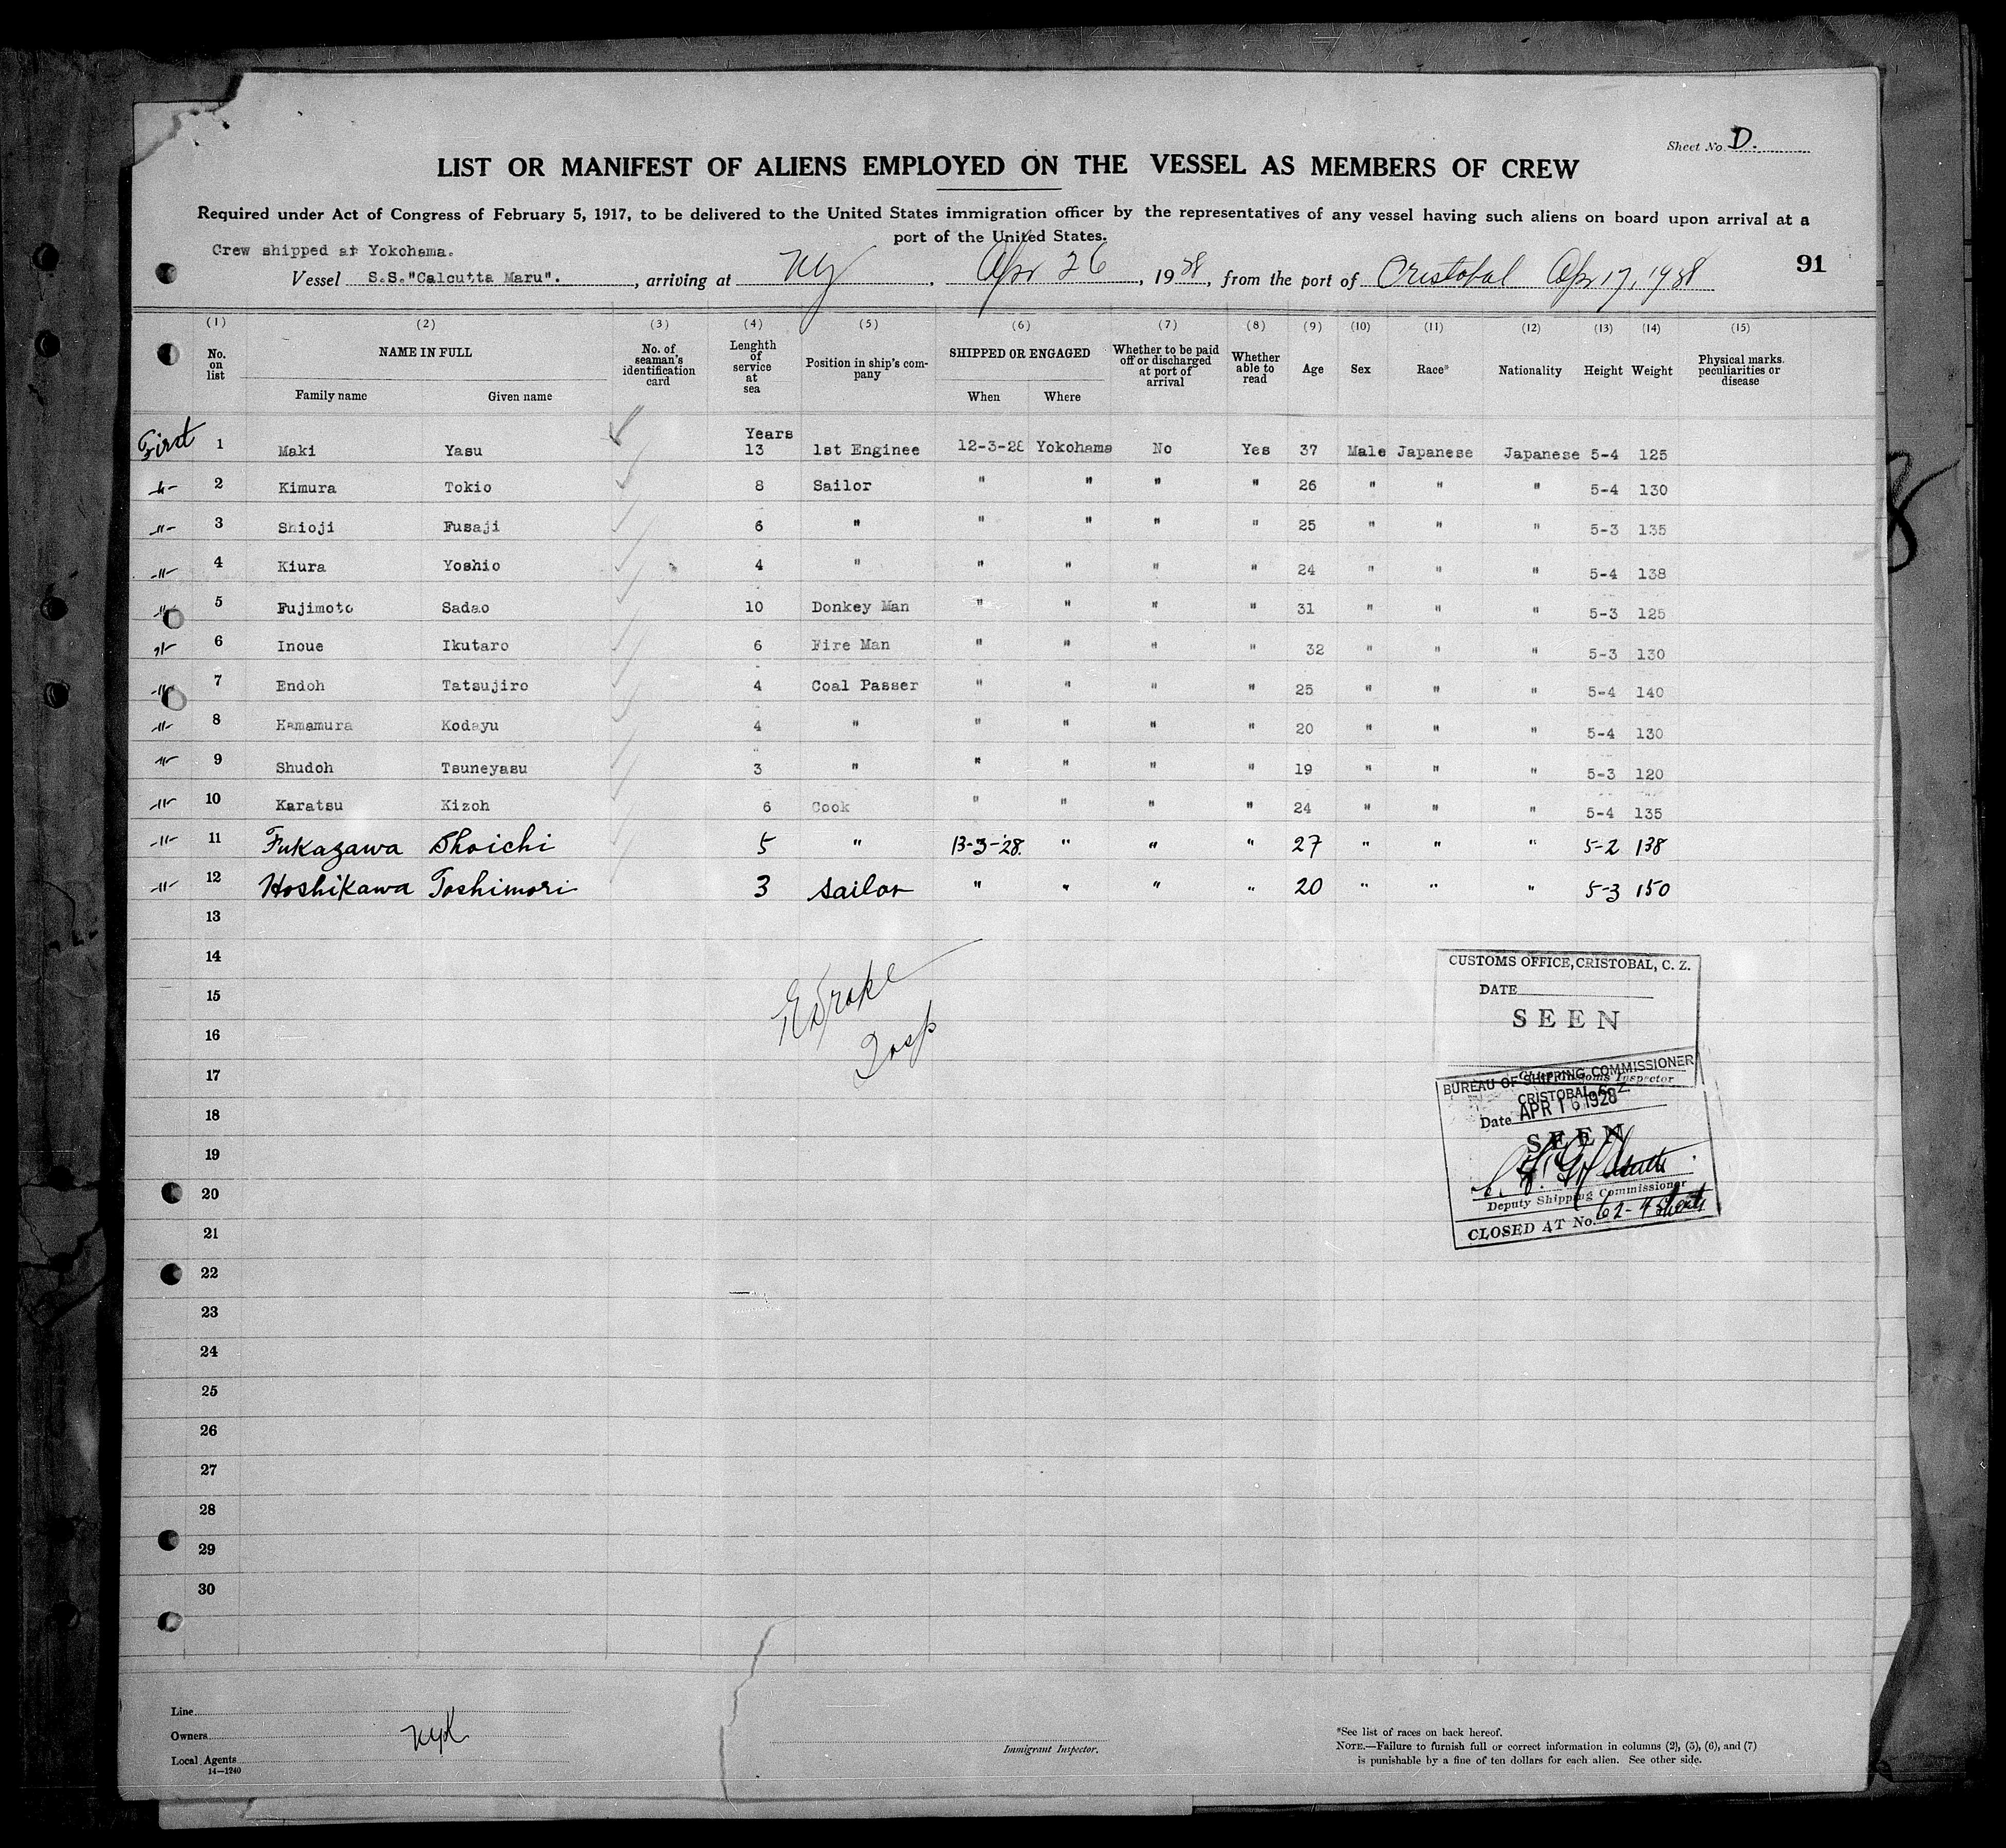 Sheet No. D.
LIST OR MANIFEST OF ALIENS EMPLOYED ON THE VESSEL AS MEMBERS OF CREW
Required under Act of Congress of February 5, 1917, to be delivered to the United States immigration officer by the representatives of any vessel having such aliens on board upon arrival at a
port of the United States.
Crew shipped at Yokohama.
91
Vessel S.S."Calcutta Maru"., arriving at NY, Apr 26, 1928, from the port of Cristobal Apr 17, 1928
(1) (2) (3) (4) (5) (6) (7) (8) (9) (10) (11) (12) (13) (14) (15)
No. on list NAME IN FULL Family name Given name No. of seaman's identification card Lenghth of service at sea Position in ship's company SHIPPED OR ENGAGED When Where Whether to be paid off or discharged at port of arrival Whether able to read Age Sex Race* Nationality Height Weight Physical marks. peculiarities or disease
Years
First 1 Maki Yasu 13 1st Enginee 12-3-28 Yokohama No Yes 37 Male Japanese Japanese 5-4 125
-"- 2 Kimura Tokio 8 Sailor " " " " 26 " " " 5-4 130
-"- 3 Shioji Fusaji 6 " " " " " 25 " " " 5-3 135
-"- 4 Kiura Yoshio 4 " " " " " 24 " " " 5-4 138
-"- 5 Fujimoto Sadao 10 Donkey Man " " " " 31 " " " 5-3 125
-"- 6 Inoue Ikutaro 6 Fire Man " " " " 32 " " " 5-3 130
-"- 7 Endoh Tatsujiro 4 Coal Passer " " " " 25 " " " 5-4 140
-"- 8 Hamamura Kodayu 4 " " " " " 20 " " " 5-4 130
-"- 9 Shudoh Tsuneyasu 3 " " " " " 19 " " " 5-3 120
-"- 10 Karatsu Kizoh 6 Cook " " " " 24 " " " 5-4 135
-"- 11 Fukazawa Shoichi 5 " 13-3-'28. " " " 27 " " " 5-2 138
-"- 12 Hoshikawa Toshimori 3 sailor " " " " 20 " " " 5-3 150
13
14
15
16
17
18
19
20
21
22
23
24
25
26
27
28
29
30
E Drake
Insp
CUSTOMS OFFICE, CRISTOBAL, C. Z.
DATE
SEEN
Customs Inspector
BUREAU OF SHIPPING COMMISSIONER
CRISTOBAL, C. Z.
Date APR 16 1928
SEEN
Deputy Shipping Commissioner
CLOSED AT No. 62-4 sheets
Line
Owners NYK
Local Agents
14—1240
Immigrant Inspector.
*See list of races on back hereof.
NOTE.—Failure to furnish full or correct information in columns (2), (5), (6), and (7)
is punishable by a fine of ten dollars for each alien. See other side.